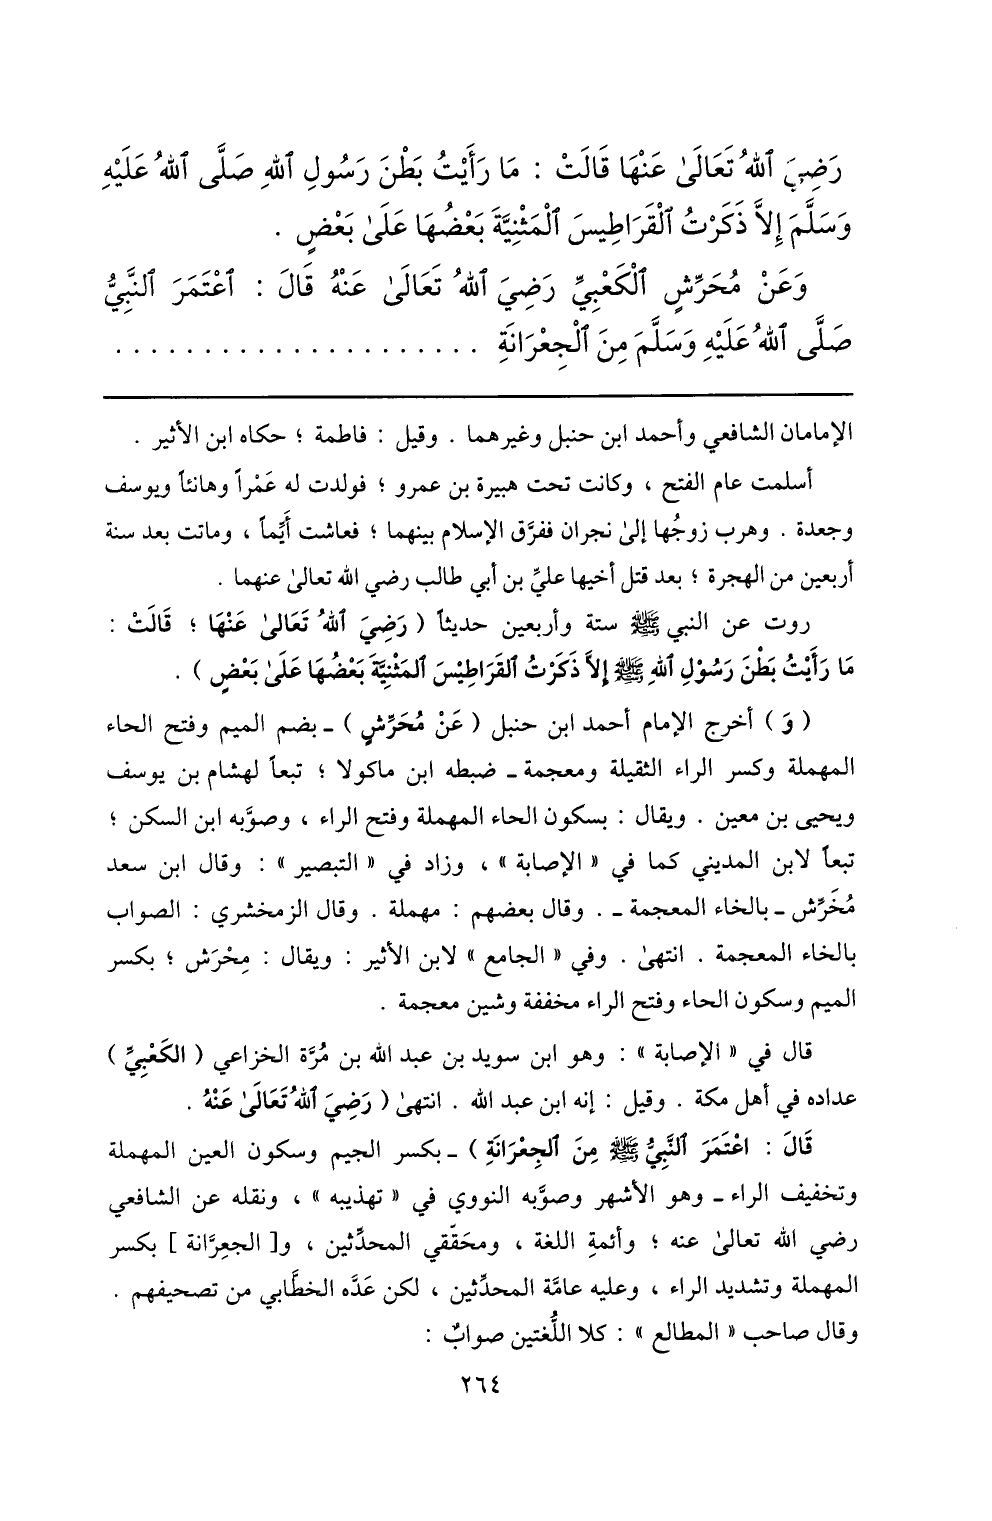 رَضِيَ ٱللهُ تَعَالَىٰ عَنْهَا قَالَتْ : مَا رَأَيْتُ بَطْنَ رَسُولِ ٱللهِ صَلَّى ٱللهُ عَلَيْهِ
وَسَلَّمَ إِلاَّ ذَكَرْتُ ٱلْقَرَاطِيسَ ٱلْمَثْنِيَّةَ بَعْضُهَا عَلَىٰ بَعْضٍ .
وَعَنْ مُحَرِّشٍ ٱلْكَعْبِيِّ رَضِيَ ٱللهُ تَعَالَىٰ عَنْهُ قَالَ : ٱعْتَمَرَ ٱلنَّبِيُّ
صَلَّى ٱللهُ عَلَيْهِ وَسَلَّمَ مِنَ ٱلْجِعْرَانَةِ . . . . . . . . . . . . . . . . . . . . .
الإمامان الشافعي وأحمد ابن حنبل وغيرهما . وقيل : فاطمة ؛ حكاه ابن الأثير .
أسلمت عام الفتح ، وكانت تحت هبيرة بن عمرو ؛ فولدت له عَمْراً وهانئاً ويوسف
وجعدة . وهرب زوجُها إلىٰ نجران ففرَّق الإسلام بينهما ؛ فعاشت أَيِّماً ، وماتت بعد سنة
أربعين من الهجرة ؛ بعد قتل أخيها عليِّ بن أبي طالب رضي الله تعالىٰ عنهما .
روت عن النبي ﷺ ستة وأربعين حديثاً ( رَضِيَ ٱللهُ تَعَالىٰ عَنْهَا ؛ قَالَتْ :
مَا رَأَيْتُ بَطْنَ رَسُوْلِ ٱللهِ ﷺ إِلاَّ ذَكَرْتُ ٱلقَرَاطِيْسَ ٱلمَثْنِيَّةَ بَعْضُهَا عَلَىٰ بَعْضٍ ) .
( وَ ) أخرج الإمام أحمد ابن حنبل ( عَنْ مُحَرِّشٍ ) ـ بضم الميم وفتح الحاء
المهملة وكسر الراء الثقيلة ومعجمة ـ ضبطه ابن ماكولا ؛ تبعاً لهشام بن يوسف
ويحيى بن معين . ويقال : بسكون الحاء المهملة وفتح الراء ، وصوَّبه ابن السكن ؛
تبعاً لابن المديني كما في « الإصابة » ، وزاد في « التبصير » : وقال ابن سعد
مُخَرِّش ـ بالخاء المعجمة ـ . وقال بعضهم : مهملة . وقال الزمخشري : الصواب
بالخاء المعجمة . انتهىٰ . وفي « الجامع » لابن الأثير : ويقال : مِحْرَش ؛ بكسر
الميم وسكون الحاء وفتح الراء مخففة وشين معجمة .
قال في « الإصابة » : وهو ابن سويد بن عبد الله بن مُرَّة الخزاعي ( الكَعْبِيِّ )
عداده في أهل مكة . وقيل : إنه ابن عبد الله . انتهىٰ ( رَضِيَ ٱللهُ تَعَالَىٰ عَنْهُ .
قَالَ : اعْتَمَرَ ٱلنَّبِيُّ ﷺ مِنَ ٱلجِعْرَانَةِ ) ـ بكسر الجيم وسكون العين المهملة
وتخفيف الراء ـ وهو الأشهر وصوَّبه النووي في « تهذيبه » ، ونقله عن الشافعي
رضي الله تعالىٰ عنه ؛ وأئمةِ اللغة ، ومحَقّقي المحدِّثين ، و[ الجعِرَّانة ] بكسر
المهملة وتشديد الراء ، وعليه عامَّة المحدِّثين ، لكن عَدَّه الخطَّابي من تصحيفهم .
وقال صاحب « المطالع » : كلا اللُّغتين صوابٌ :
٢٦٤